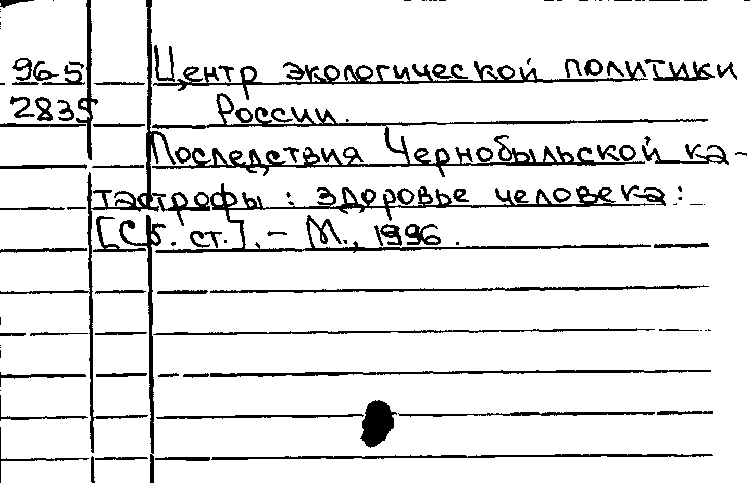 96-5 Центр экологической политики
2835 России.
Последствия Чернобыльской ка-
тастрофы : здоровье человека :
[Сб. ст.]. – М., 1996.